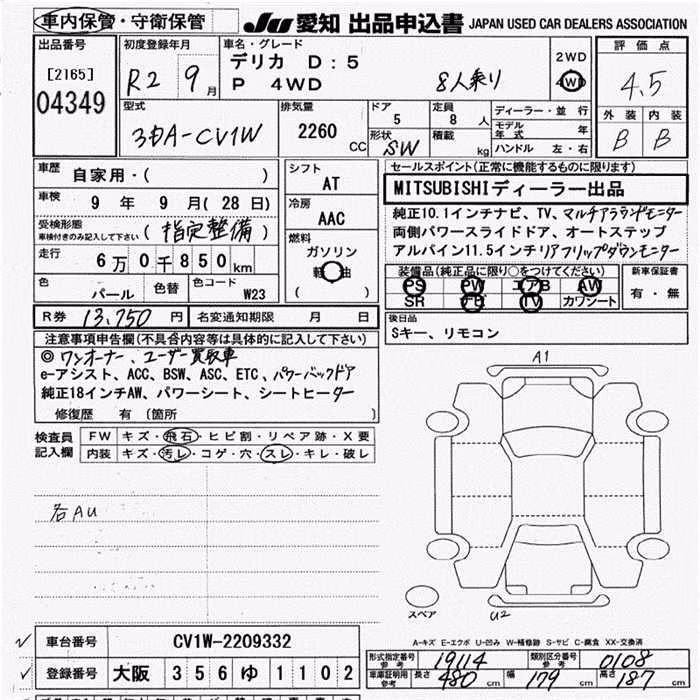 車内保管・守衛保管
JU 愛知 出品申込書 JAPAN USED CAR DEALERS ASSOCIATION
出品番号
[2165]
04349
初度登録年月
R2 9月
車名・グレード
デリカ D:5
P 4WD
8人乗り
2WD
4WD
評価点
4.5
外装 内装
B B
型式
3DA-CV1W
排気量
2260
CC
ドア
5
形状
SW
定員
8 人
積載
kg
ディーラー・並行
モデル年式 年
ハンドル 左・右
車歴
自家用・( )
車検
9 年 9 月 ( 28 日)
受検形態
車検付きのみ記入して下さい
(指定整備)
走行
6 万 0 千 8 5 0 km
色
パール
色替
色コード
W23
シフト
AT
冷房
AAC
燃料
ガソリン
軽油
( )
セールスポイント(正常に機能するものに限ります)
MITSUBISHIディーラー出品
純正10.1インチナビ、TV、マルチアラウンドモニター
両側パワースライドドア、オートステップ
アルパイン11.5インチリアフリップダウンモニター
装備品(純正品に限り○をつけてください)
PS PW エアB AW
SR ナビ TV カワシート
新車保証書
有・無
R券 13,750 円
名変通知期限 月 日
後日品
Sキー、リモコン
注意事項申告欄(不具合内容等は具体的に記入して下さい)
◎ワンオーナー、ユーザー買取車
e-アシスト、ACC、BSW、ASC、ETC、パワーバックドア
純正18インチAW、パワーシート、シートヒーター
修復歴 有 (箇所 )
検査員
記入欄
FW キズ・飛石・ヒビ割・リペア跡・X要
内装 キズ・汚レ・コゲ・穴・スレ・キレ・破レ
各AU
A1
スペア
U2
A-キズ E-エクボ U-凹み W-補修跡 S-サビ C-腐食 XX-交換済
車台番号 CV1W-2209332
登録番号 大阪 356 ゆ 1102
形式指定番号
参考
19114
類別区分番号
参考
0108
車庫証明用
参考
長さ 480 cm 幅 179 cm 高さ 187 cm